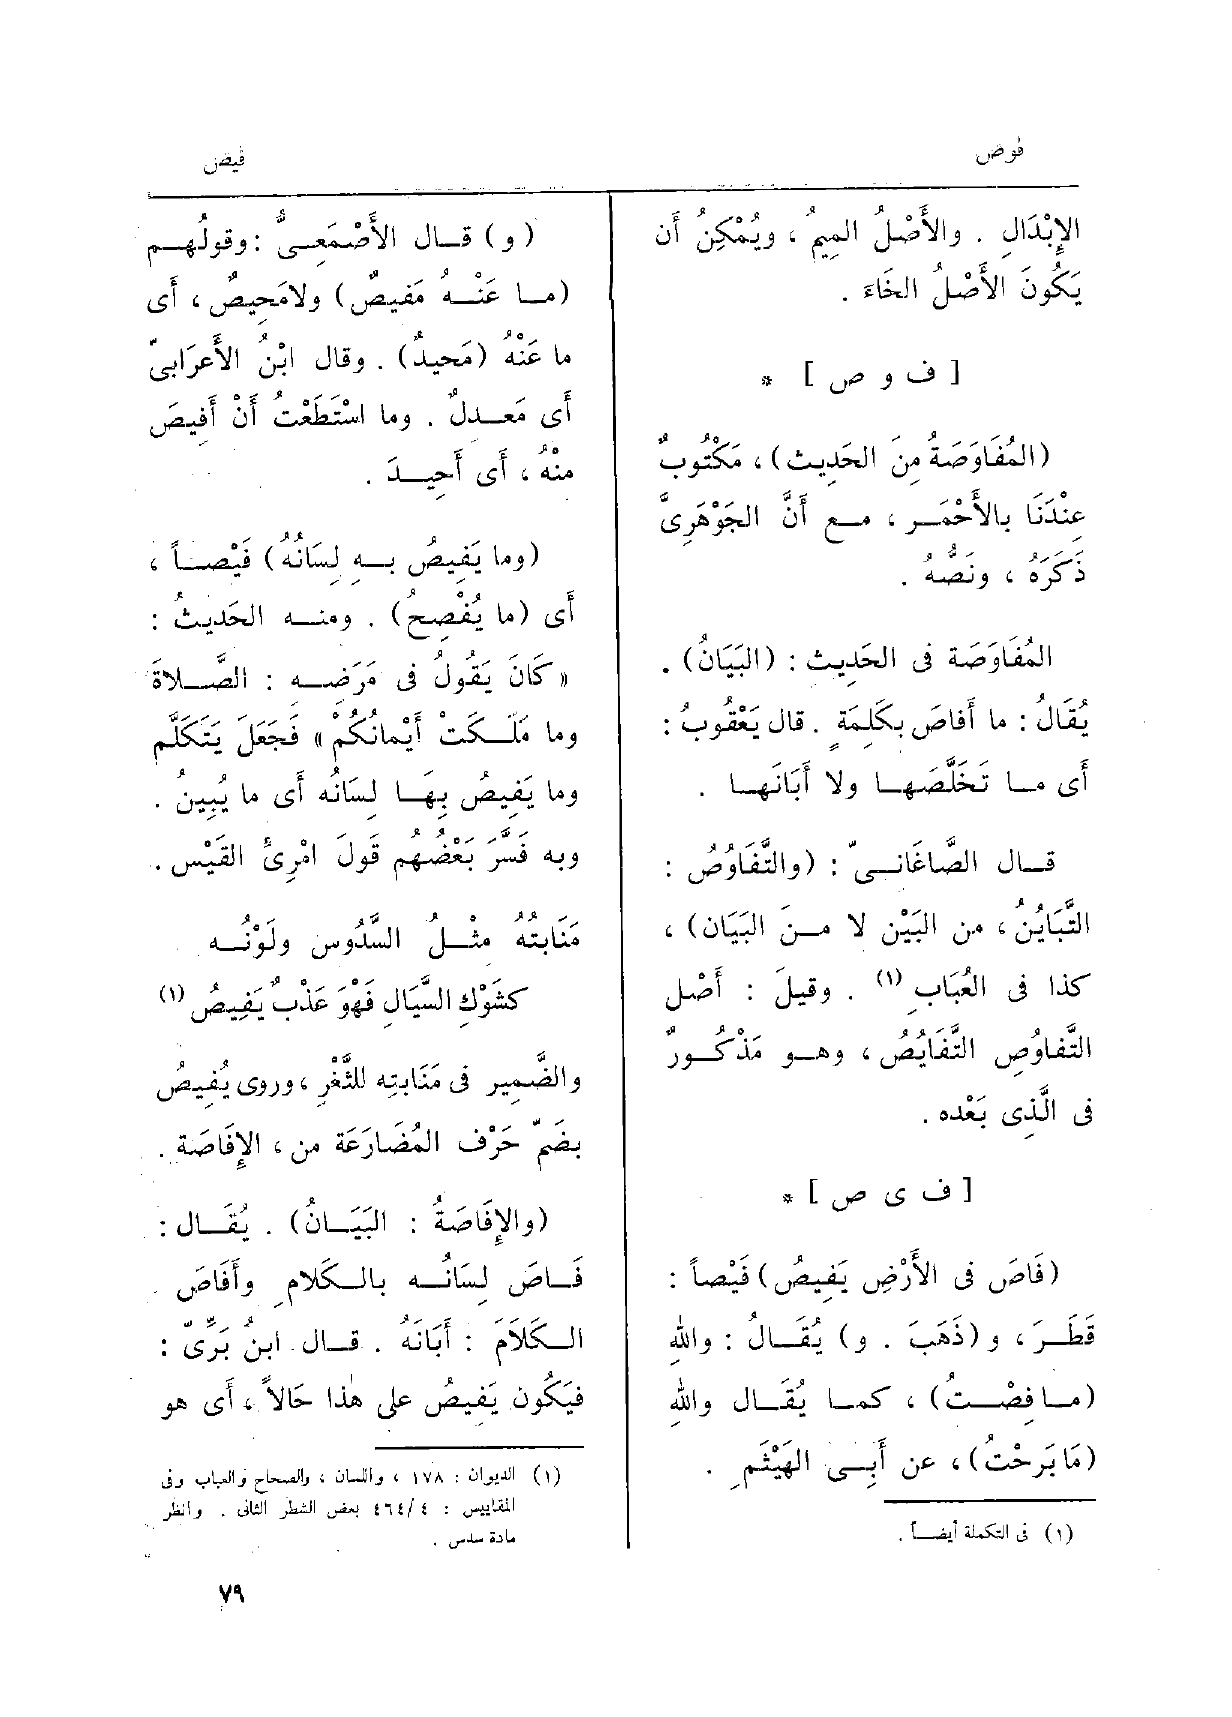 فوص
فيص
الإِبْدَالِ . والأَصْلُ المِيمُ ، ويُمْكِنُ أَن
يَكُونَ الأَصْلُ الخَاءَ .
[ ف و ص ] *
(المُفَاوَصَةُ مِنَ الحَدِيث) ، مَكْتُوبٌ
عِنْدَنَا بالأَحْمَـرِ ، مـع أَنَّ الجَوْهَرِىَّ
ذَكَرَهُ ، ونَصُّهُ .
المُفَاوَصَة فى الحَدِيث : (البَيَانُ) .
يُقَالُ : ما أَفاصَ بكَلِمَةٍ . قال يَعْقُوبُ :
أَى مـا تَخَلَّصَهـا ولا أَبَانَهـا .
قـال الصَّاغَانـىّ : (والتَّفَاوُصُ :
التَّبَايُنُ ، من البَيْنِ لا مـنَ البَيَان) ،
كذا فى العُبَابِ (١) . وقِيلَ : أَصْل
التَّفاوُصِ التَّفَايُصُ ، وهـو مَذْكُـورٌ
فى الَّذِى بَعْده .
[ ف ى ص ] *
(فَاصَ فى الأَرْضِ يَفِيصُ) فَيْصاً :
قَطَـرَ ، و (ذَهَبَ . و) يُقَـالُ : واللهِ
(مـا فِصْـتُ) ، كمـا يُقَـال واللهِ
(مَا بَرِحْتُ) ، عن أَبِـى الهَيْثَمِ .
(١) فى التكملة أيضـاً .
( و ) قـال الأَصْمَعِـىُّ : وقولُهـم
(مـا عَنْـهُ مَفِيصٌ) ولامَحِيصٌ ، أَى
ما عَنْهُ (مَحِيدٌ) . وقال ابْنُ الأَعرَابىّ
أَى مَعـدلٌ . وما اسْتَطَعْتُ أَنْ أَفِيصَ
منْهُ ، أَى أَحِيـدَ .
(وما يَفِيصُ بـه لِسَانُهُ) فَيْصـاً ،
أَى (ما يُفْصِحُ) . ومنـه الحَدِيثُ :
« كَانَ يَقُولُ فى مَرَضِـه : الصَّـلاةَ
وما مَلَـكَتْ أَيْمانُكُمْ » فَجَعَلَ يَتَكَلَّم
وما يَفِيصُ بِهَـا لِسَانُه أَى ما يُبِينُ .
وبه فَسَّرَ بَعْضُهم قَولَ امْرِئُ القَيْس .
مَنَابِتُهُ مثْـلُ السُّدُوس ولَوْنُـه
كشَوْكِ السَّيَالِ فَهْوَ عَذْبٌ يَفِيصُ (١)
والضَّمِير فى مَنَابتِه للثَّغْرِ ، وروى يُفِيصُ
بضَمّ حَرْف المُضَارَعَة من ، الإِفَاصَة .
(والإِفَاصَةُ : البَيَـانُ) . يُقَـال :
فَـاصَ لِسَانُـه بالـكَلامِ وأَفَاصَ
الـكَلاَمَ : أَبَانَهُ . قـال ابنُ بَرِّىّ :
فيَكُون يَفيصُ على هٰذا حَالاً ، أَى هو
(١) الديوان : ١٧٨ ، واللسان ، والصحاح والعباب وفى
المقاييس : ٤/٤٦٤ بعض الشطر الثانى . وانظر
مادة سدس .
٧٩